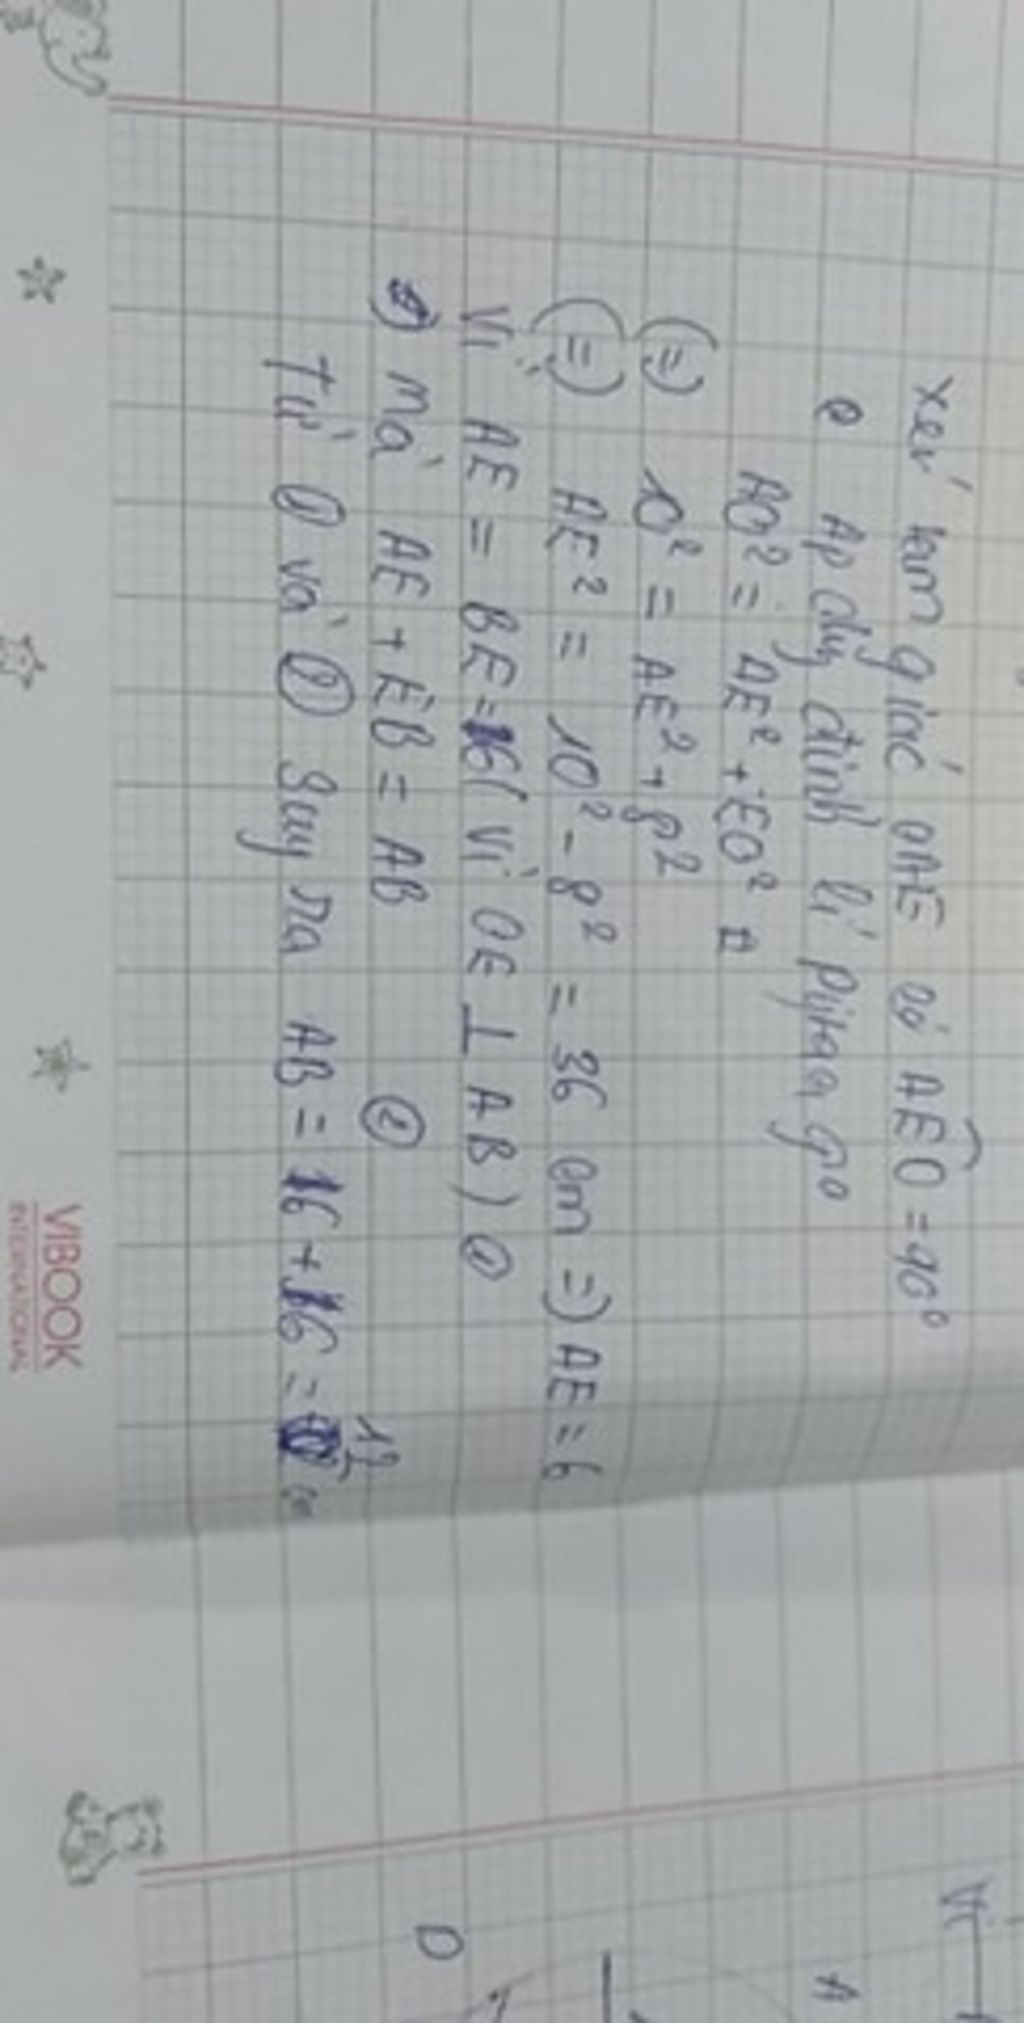 xét tam giác OAE có AEO = 90°
Áp dụg định lí pytago
AO² = AE² + EO²
(=) 10² = AE² + 8²
(=) AE² = 10² - 8² = 36 cm =) AE = 6
Vì AE = BE = 6 ( Vì OE ⊥ AB ) ①
mà AE + EB = AB ②
Từ ① và ② suy ra AB = 6 + 6 = 12
VIBOOK
INTERNATIONAL
Vì
A
D